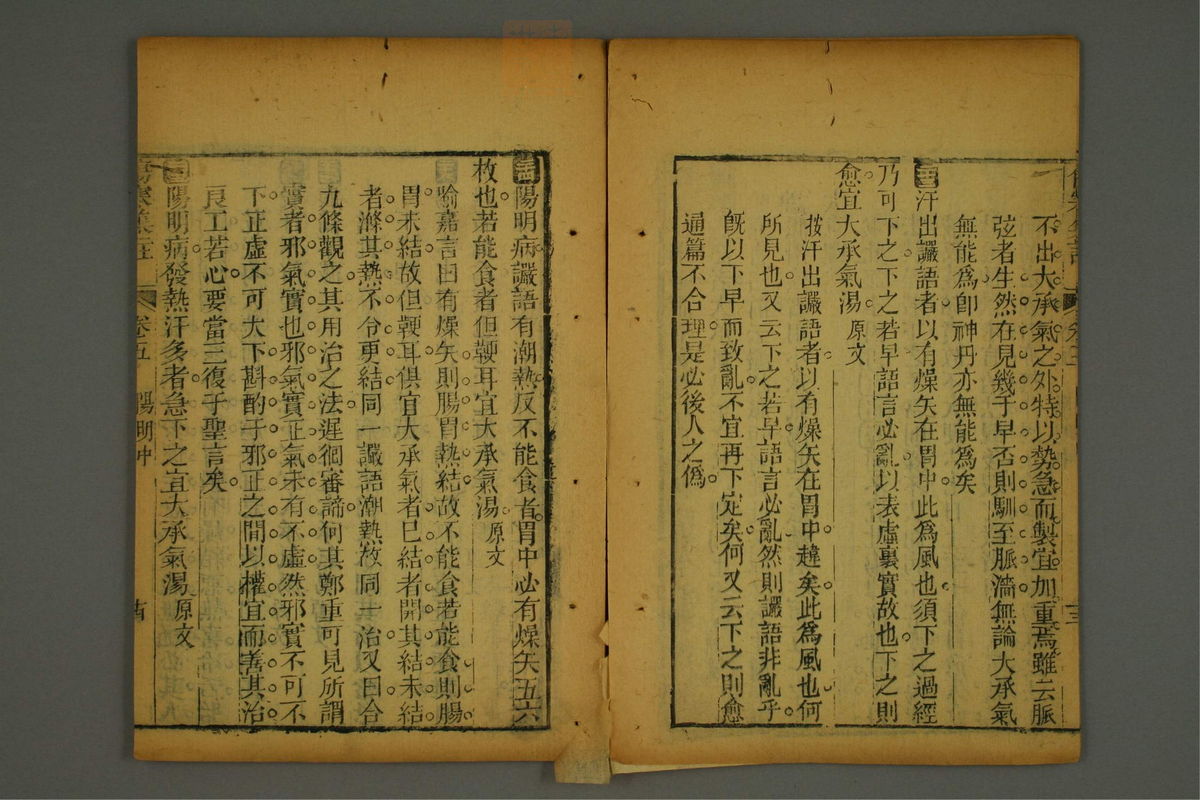 不出大承氣之外特以勢急而製宜加重焉雖云脈
弦者生然在見幾于早否則馴至脈濇無論大承氣
無能爲卽神丹亦無能爲矣
汗出讝語者以有燥矢在胃中此爲風也須下之過經
乃可下之下之若早語言必亂以表虛裏實故也下之則
愈宜大承氣湯原文
按汗出讝語者以有燥矢在胃中韙矣此爲風也何
所見也又云下之若早語言必亂然則讝語非亂乎
旣以下早而致亂不宜再下定矣何又云下之則愈
通篇不合理是必後人之僞
陽明病讝語有潮熱反不能食者胃中必有燥矢五六
枚也若能食者但鞕耳宜大承氣湯原文
喻嘉言曰有燥矢則腸胃熱結故不能食若能食則腸
胃未結故但鞕耳俱宜大承氣者已結者開其結未結
者滌其熱不令更結同一讝語潮熱故同一治又曰合
九條觀之其用治之法遲徊審諦何其鄭重可見所謂
實者邪氣實也邪氣實正氣未有不虛然邪實不可不
下正虛不可大下斟酌于邪正之間以權宜而善其治
良工若心要當三復于聖言矣
陽明病發熱汗多者急下之宜大承氣湯原文
卷五 陽明中